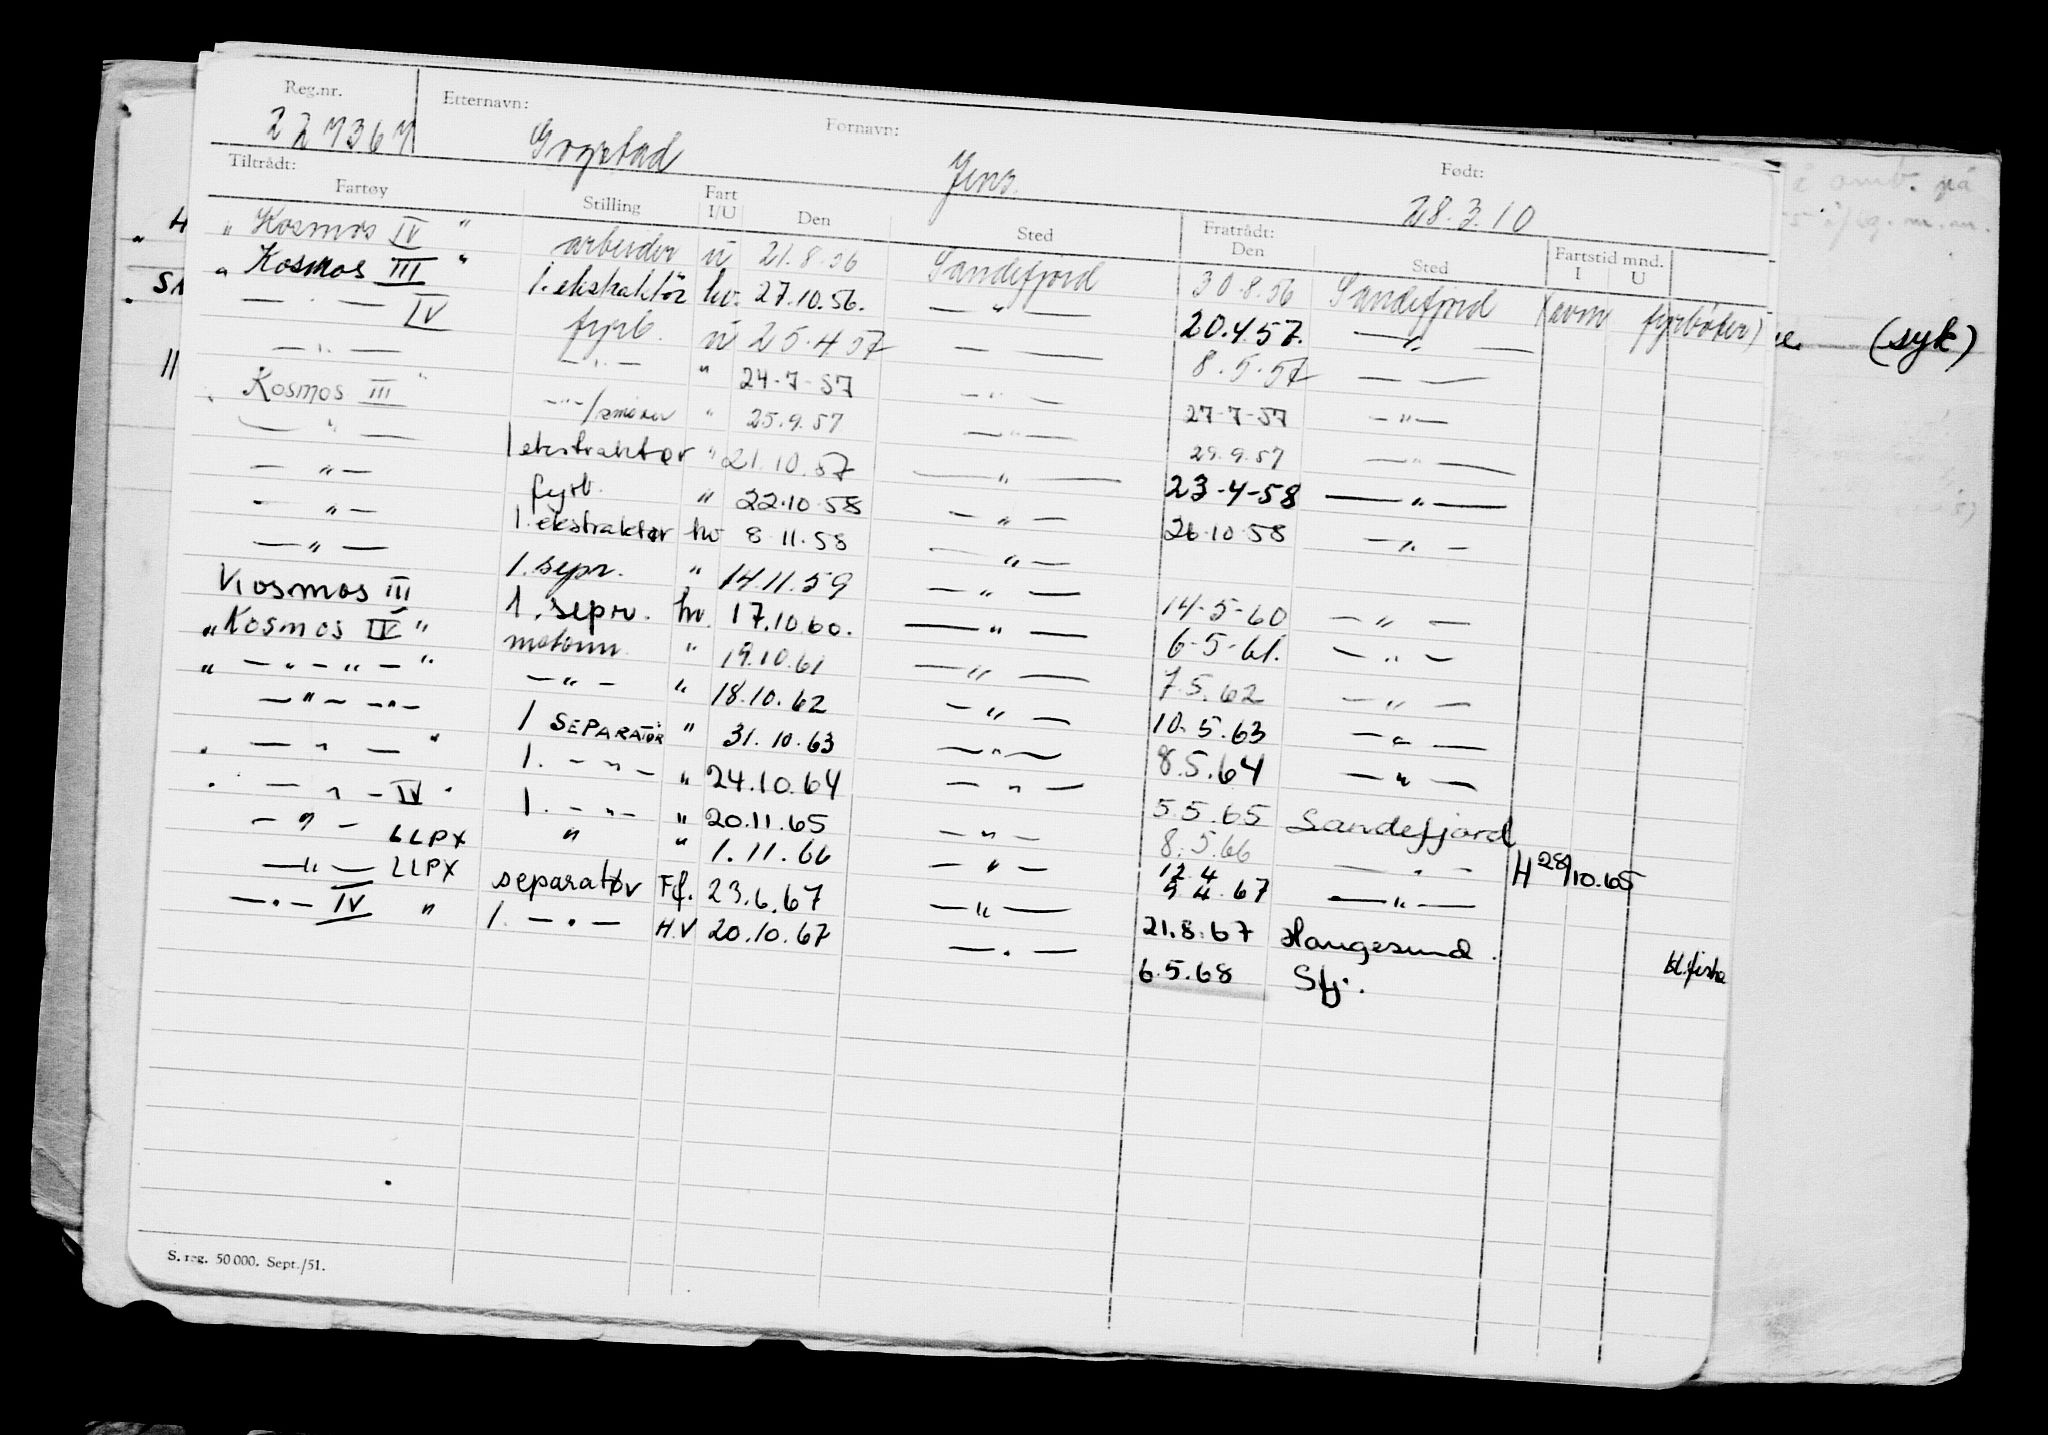 Reg.nr. Etternavn: Fornavn: Født:
227367 Gogstad Jens. 28.3.10
Tiltrådt: Fratrådt:
Fartøy Stilling Fart I/U Den Sted Den Sted Fartstid mnd. I U
" Kosmos IV " arbeider u 21.8.56 Sandefjord 30.8.56 Sandefjord (avm fyrbøter)
" Kosmos III " 1. ekstraktör hv. 27.10.56. — " — 20.4.57. — " —
— " — IV fyrb. u 25.4.57 — — 8.5.57 — —
— " — — " — " 24-7-57 — " — 27-7-57 — " —
Kosmos III " — " — /smører " 25.9.57 — " — 29.9.57 — " —
— " — 1 ekstraktør " 21.10.57 — " — 23-4-58 — " —
— " — fyrb. " 22.10.58 — " — 26.10.58 — " —
— " — 1. ekstraktør hv 8.11.58 — " —
— " — 1. sepr. " 14.11.59 — " — 14-5-60 — " —
Kosmos III 1. sepr. hv. 17.10.60. — " — 6-5-61. — " —
" Kosmos IV " motorm. " 19.10.61 — " — 7.5.62 — " —
" — " — " — " — " — " 18.10.62 — " — 10.5.63 — " —
— " — — " — 1 SEPARATÖR " 31.10.63 — " — 8.5.64 — " —
" — " — " 1. — " — " 24.10.64 — " — 5.5.65 Sandefjord
" — " — IV " 1. — " — " 20.11.65 — " — 8.5.66 — " — H 28/10.65
— " — LLPX " " 1.11.66 — " — 12.4 9.4.67 — " —
— " — LLPX separatør Ff. 23.6.67 — " — 21.8.67 Haugesund. kl.fiske
— " — IV " 1. — " — H.V 20.10.67 — " — 6.5.68 Sfj.
(syk)
S. reg. 50 000. Sept./51.